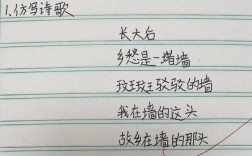 1.仿写诗歌
长大后
乡愁是一堵墙
斑斑驳驳的墙
我在墙的这头
故乡在墙的那头